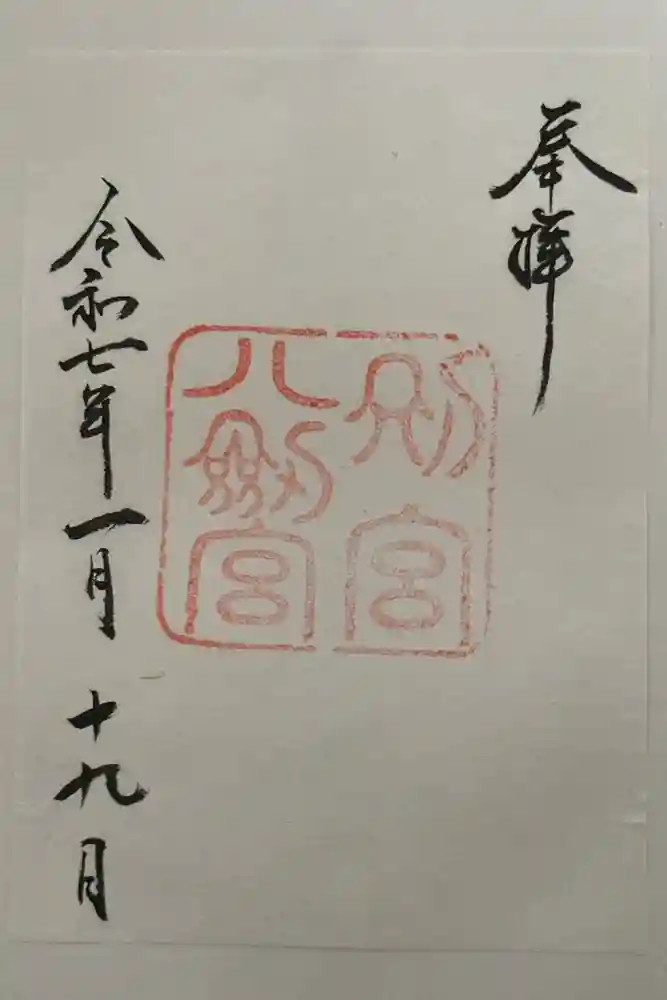 奉拝
別宮
八劔宮
令和七年一月十九日